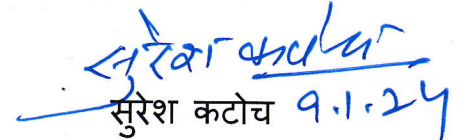 सुरेश कटोच
सुरेश कटोच 9.1.24